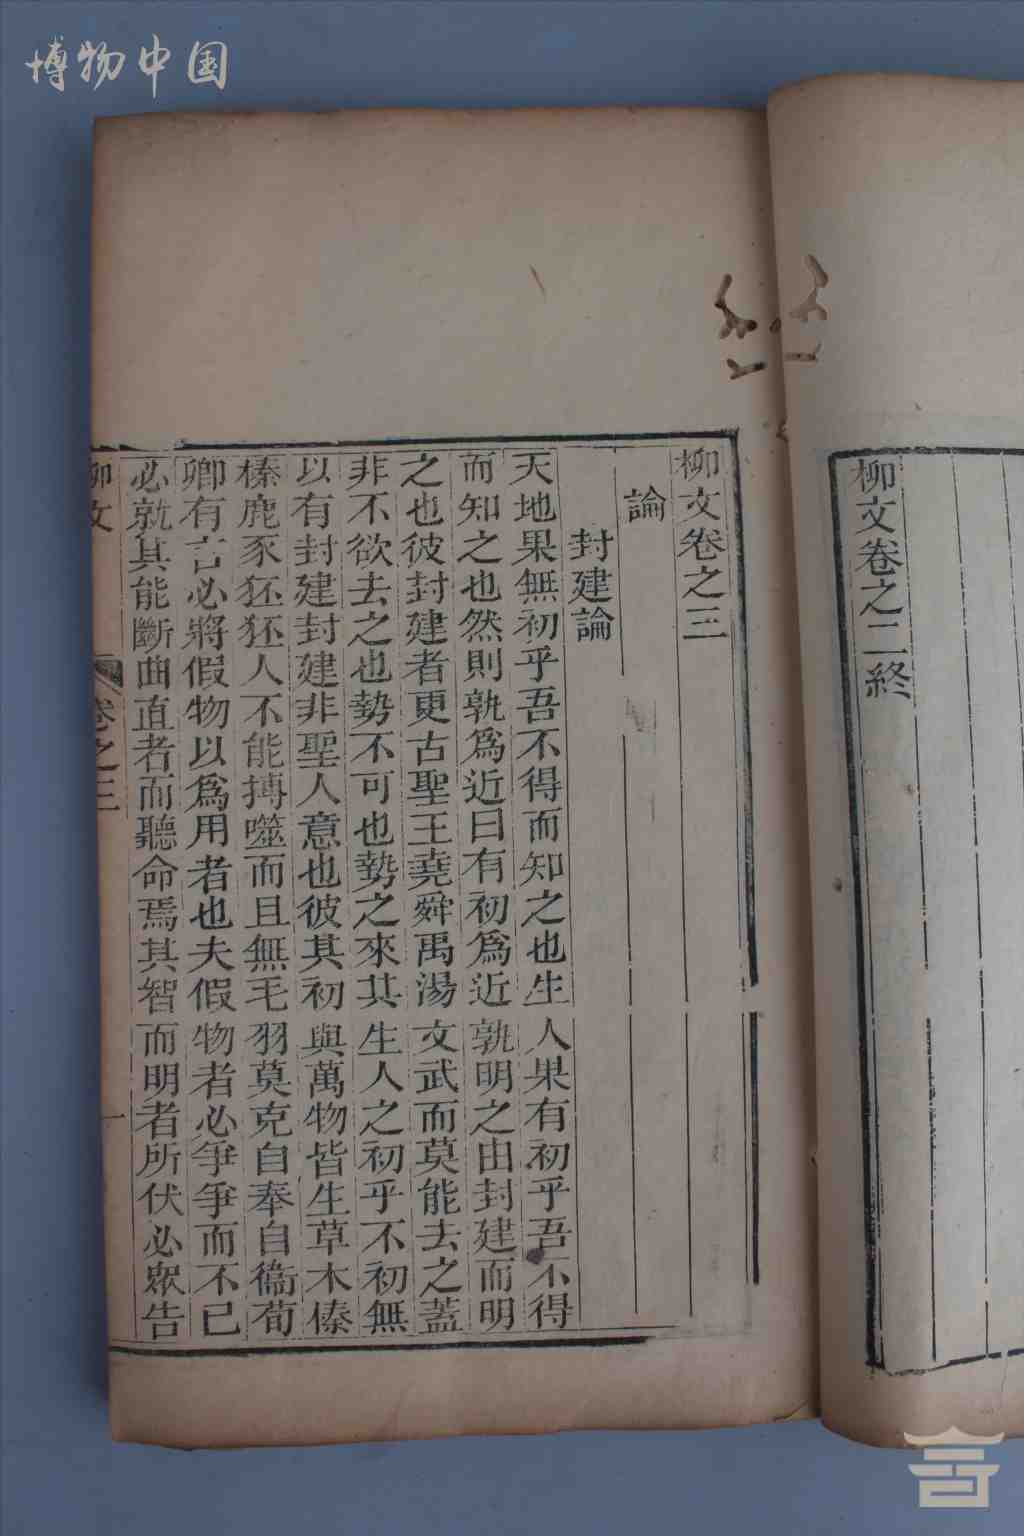 博物中国
柳文卷之二終
柳文卷之三
論
封建論
天地果無初乎吾不得而知之也生人果有初乎吾不得
而知之也然則孰爲近曰有初爲近孰明之由封建而明
之也彼封建者更古聖王堯舜禹湯文武而莫能去之蓋
非不欲去之也勢不可也勢之來其生人之初乎不初無
以有封建封建非聖人意也彼其初與萬物皆生草木榛
榛鹿豕狉狉人不能搏噬而且無毛羽莫克自奉自衞荀
卿有言必將假物以爲用者也夫假物者必爭爭而不已
必就其能斷曲直者而聽命焉其智而明者所伏必衆告
柳文
卷之三
一